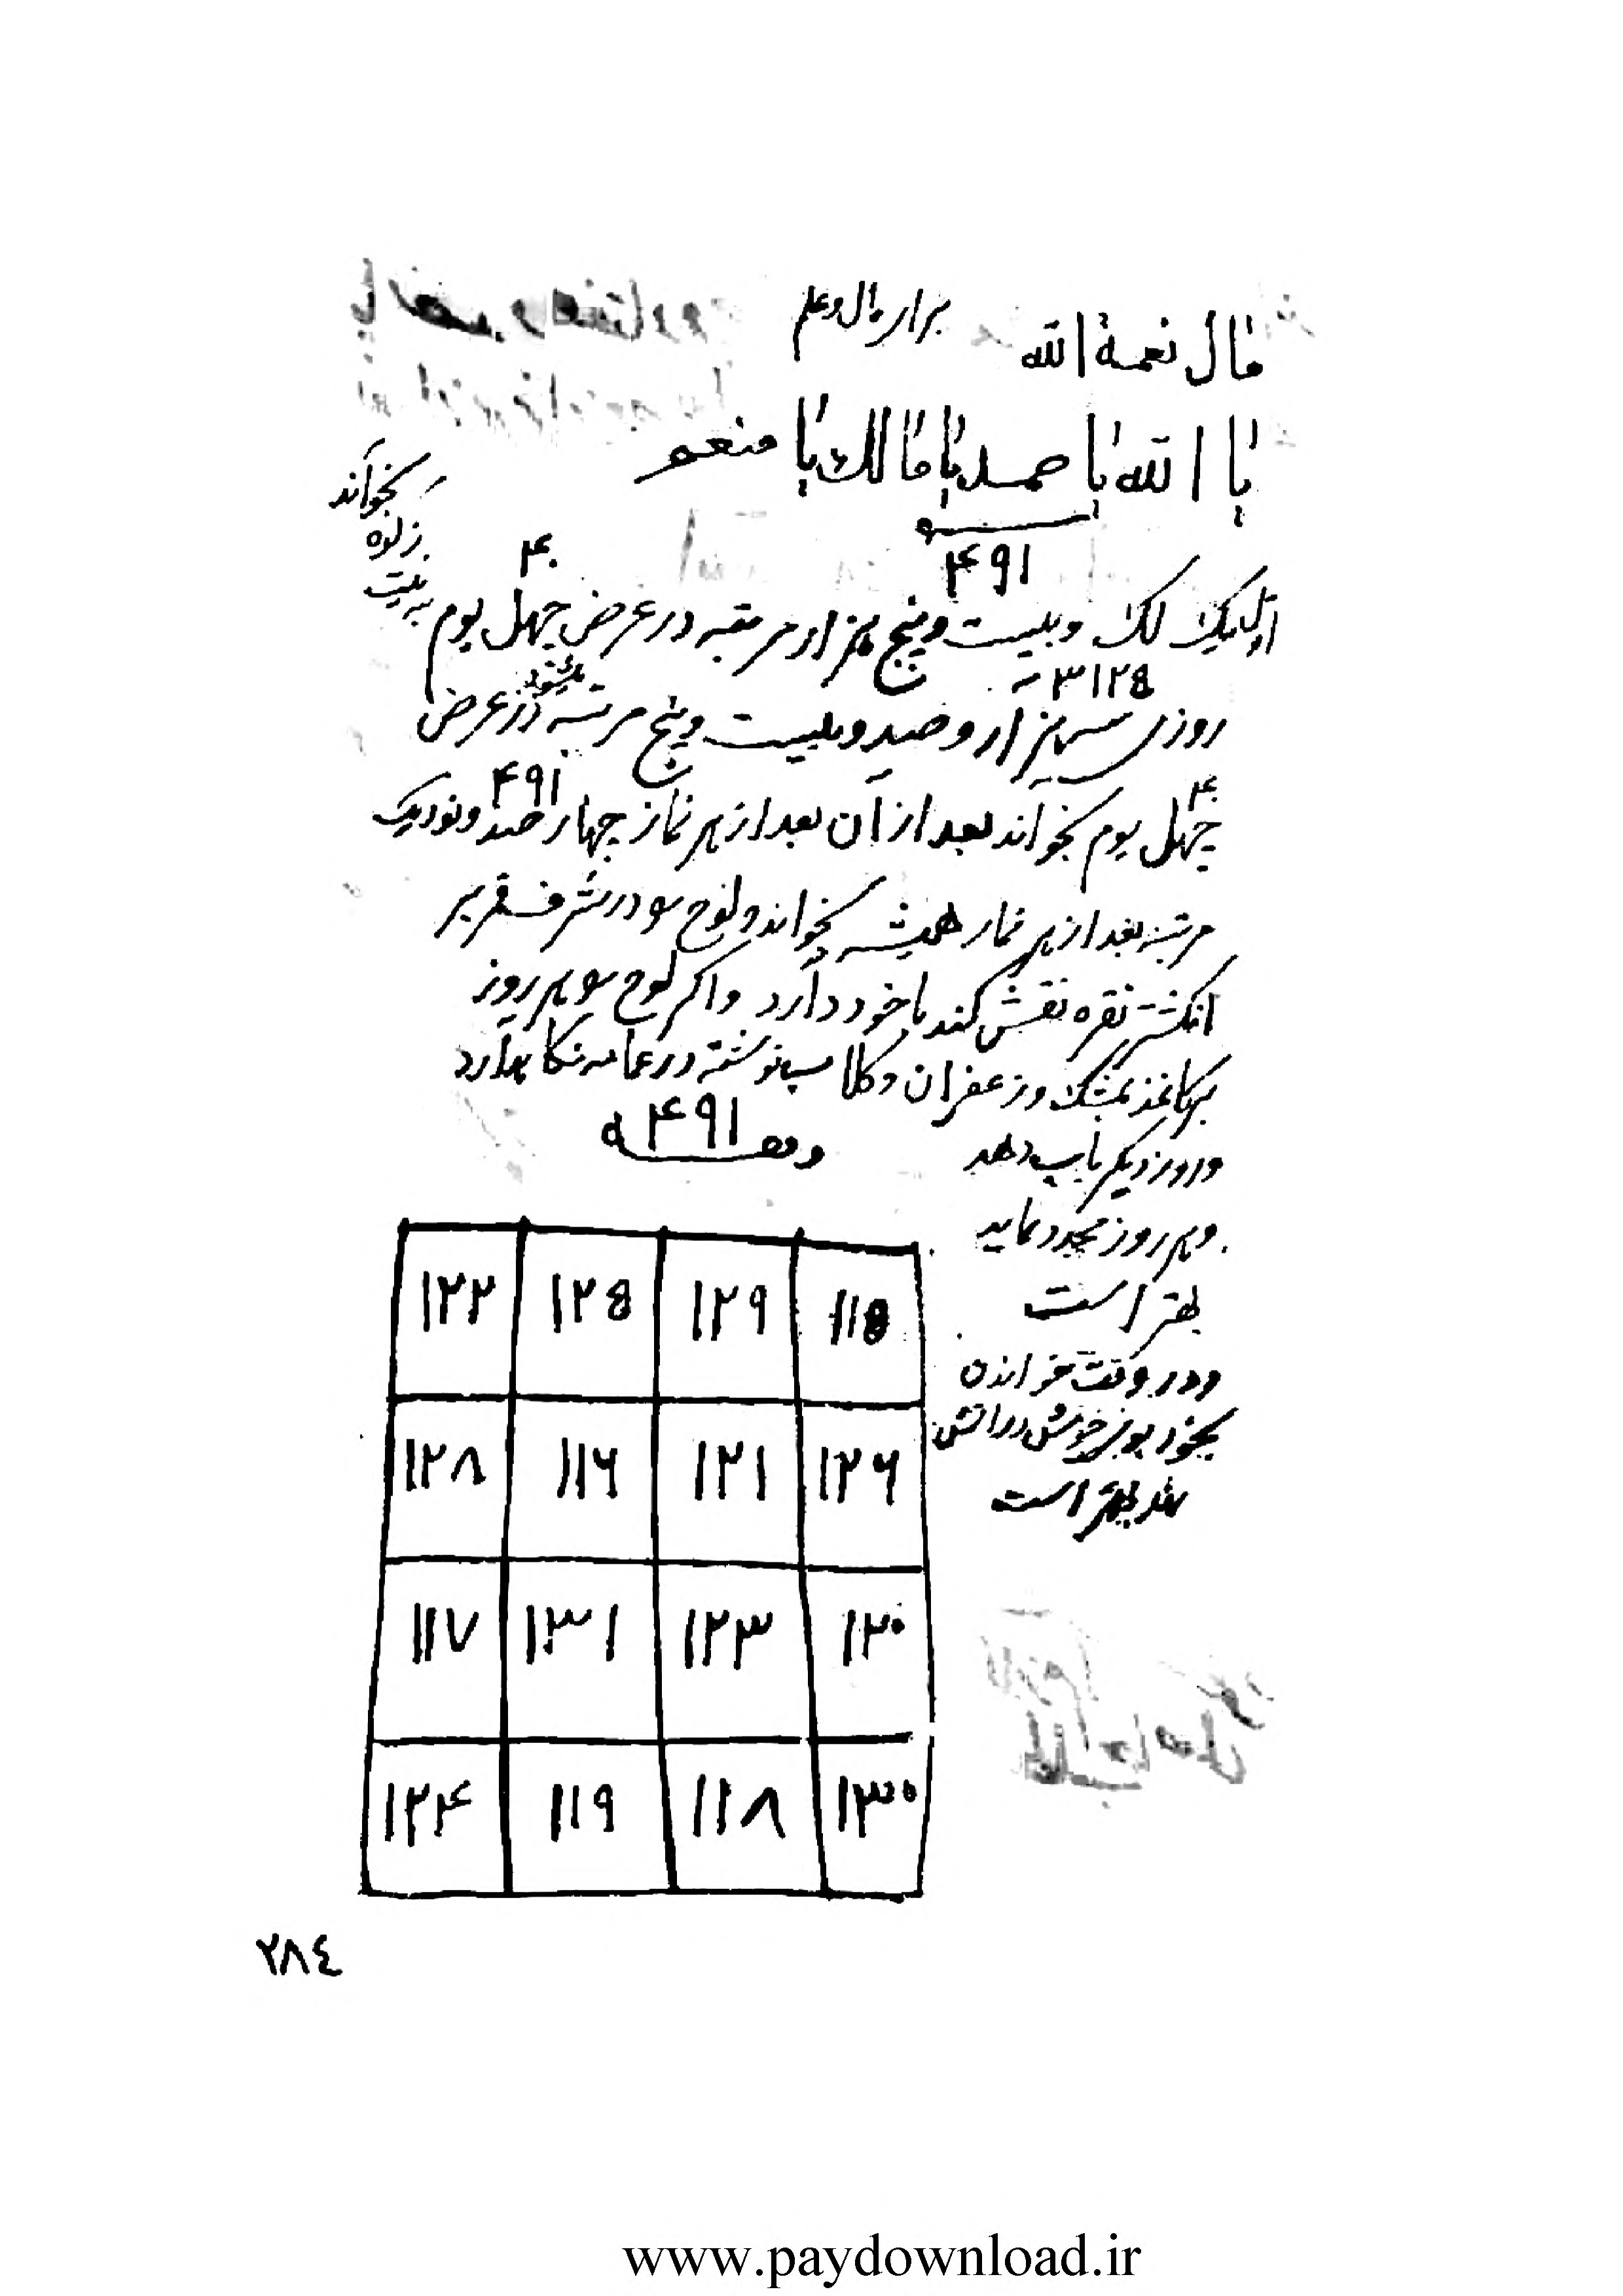 مال نعمة الله برای مال و علم
یا الله یا صمد یا مالک یا منعم
۴۹۱
بخواند
زکوة
به نیت
اول یک لک و بیست و پنج هزار مرتبه در عرض چهل یوم
۴۰
۳۱۲۵
روزی سه هزار و صد و بیست و پنج مرتبه میشود در عرض
۴۰ ۴۹۱
چهل یوم بخواند بعد از آن بعد از هر نماز چهار صد و نود و یک
مرتبه بعد از هر نماز همیشه بخواند و لوح سو در شرف قمر بر
انگشتر نقره نقش کند با خود دارد و اگر لوح سو هر روز
بر کاغذ بمشک و زعفران و کلاب نوشته در عمامه نکاهدارد
و روز دیگر بآب دهد
وفقه ۴۹۱
و هر روز مجدد نماید
بهتر است
و در وقت خواندن
بخور بوی خوش در آتش
نهد بهتر است
۱۲۲ ۱۲۵ ۱۲۹ ۱۱۵
۱۲۸ ۱۱۶ ۱۲۱ ۱۲۶
۱۱۷ ۱۳۱ ۱۲۳ ۱۲۰
۱۲۴ ۱۱۹ ۱۱۸ ۱۳۰
۲۸٤
www.paydownload.ir